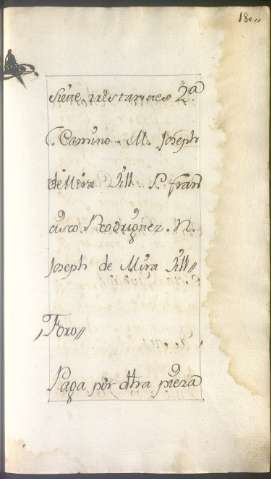 180
Siene, uestarores 2.ª
C. Camino. M. Joseph
de Mira Vill. P. Fran
cisco Rodriguez. N.
Joseph de Mira Vill
Foro
Paga por dhª pieza